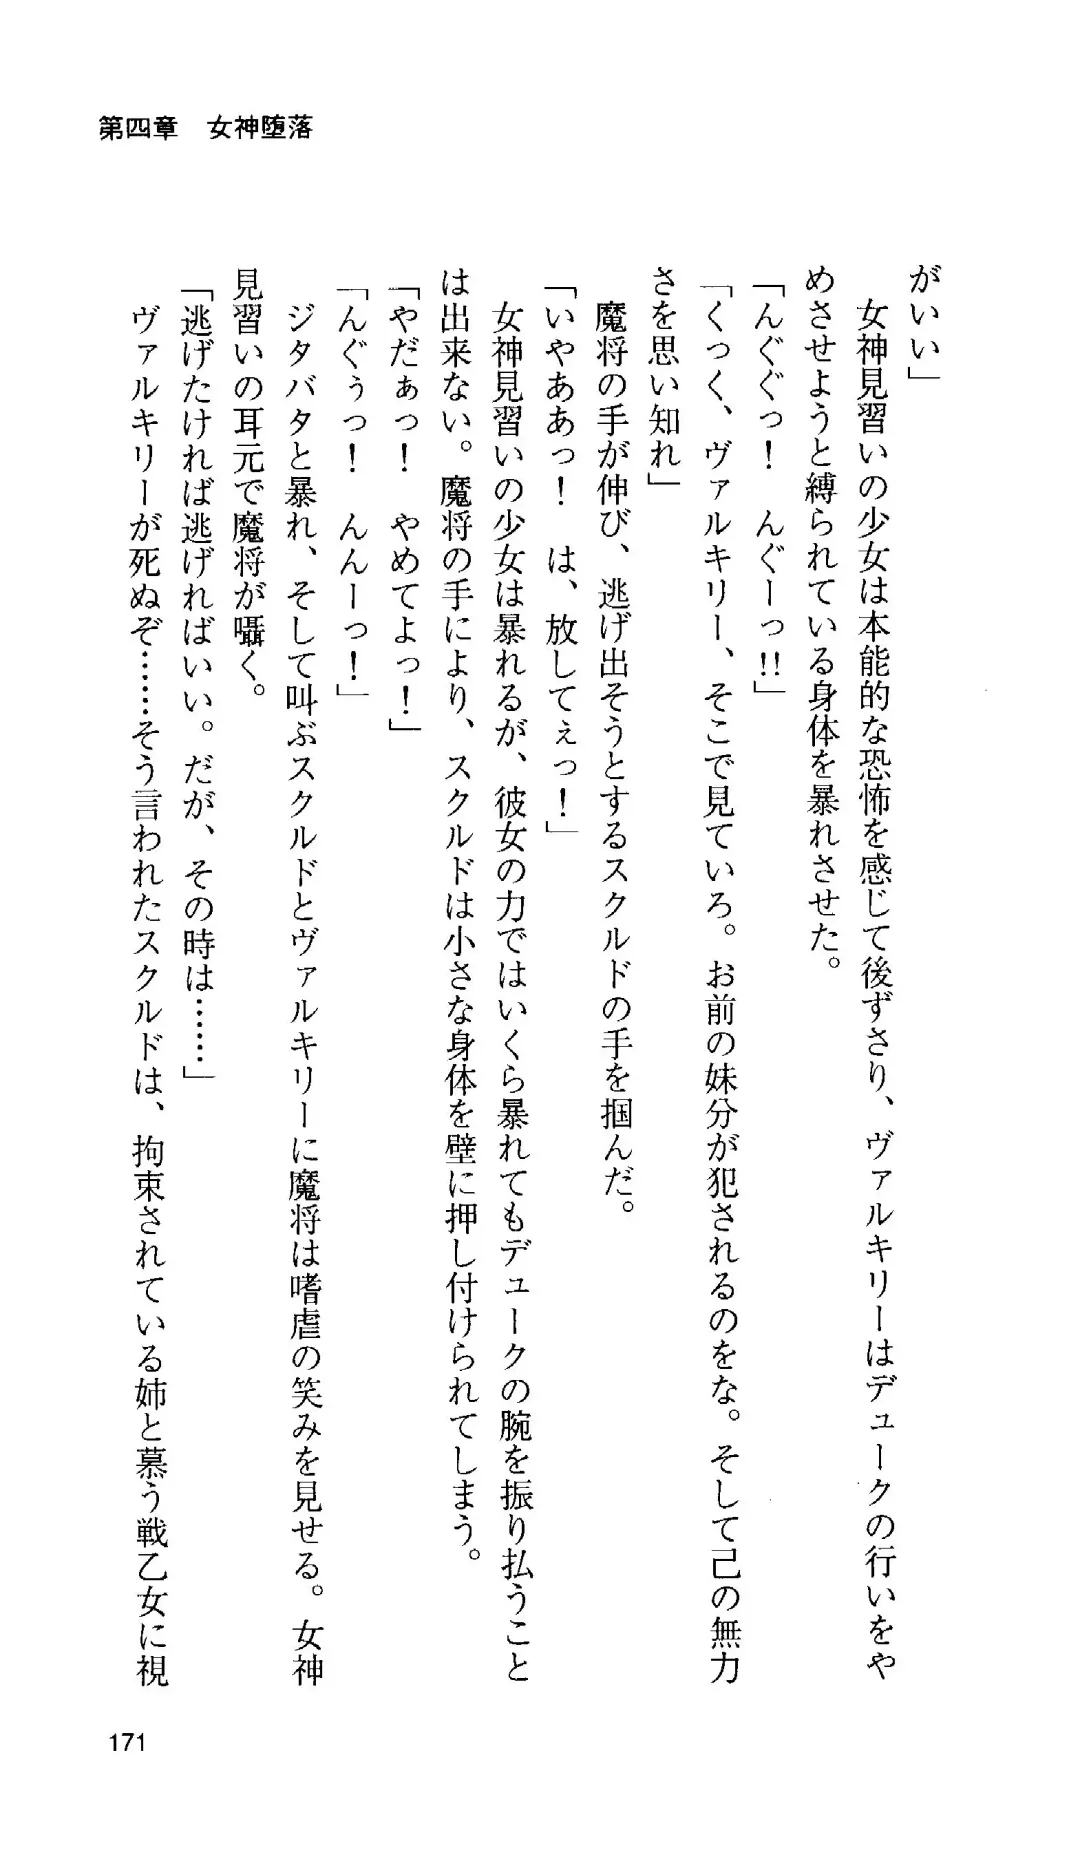 第四章　女神堕落
がいい」
女神見習いの少女は本能的な恐怖を感じて後ずさり、ヴァルキリーはデュークの行いをや
めさせようと縛られている身体を暴れさせた。
「んぐぐっ！　んぐーっ!!」
「くっく、ヴァルキリー、そこで見ていろ。お前の妹分が犯されるのをな。そして己の無力
さを思い知れ」
魔将の手が伸び、逃げ出そうとするスクルドの手を掴んだ。
「いやああっ！　は、放してぇっ！」
女神見習いの少女は暴れるが、彼女の力ではいくら暴れてもデュークの腕を振り払うこと
は出来ない。魔将の手により、スクルドは小さな身体を壁に押し付けられてしまう。
「やだぁっ！　やめてよっ！」
「んぐぅっ！　んんーっ！」
ジタバタと暴れ、そして叫ぶスクルドとヴァルキリーに魔将は嗜虐の笑みを見せる。女神
見習いの耳元で魔将が囁く。
「逃げたければ逃げればいい。だが、その時は……」
ヴァルキリーが死ぬぞ……そう言われたスクルドは、拘束されている姉と慕う戦乙女に視
171